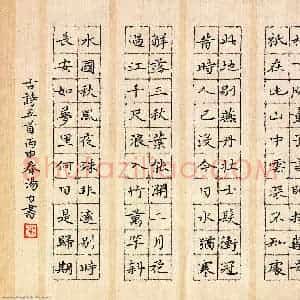 祇在此山中雲深不知處
此地別燕丹壯士髮衝冠
昔時人已沒今日水猶寒
解落三秋葉能開二月花
過江千尺浪入竹萬竿斜
水國秋風夜殊非遠別時
長安如夢裏何日是歸期
古詩五首丙申春湯力書